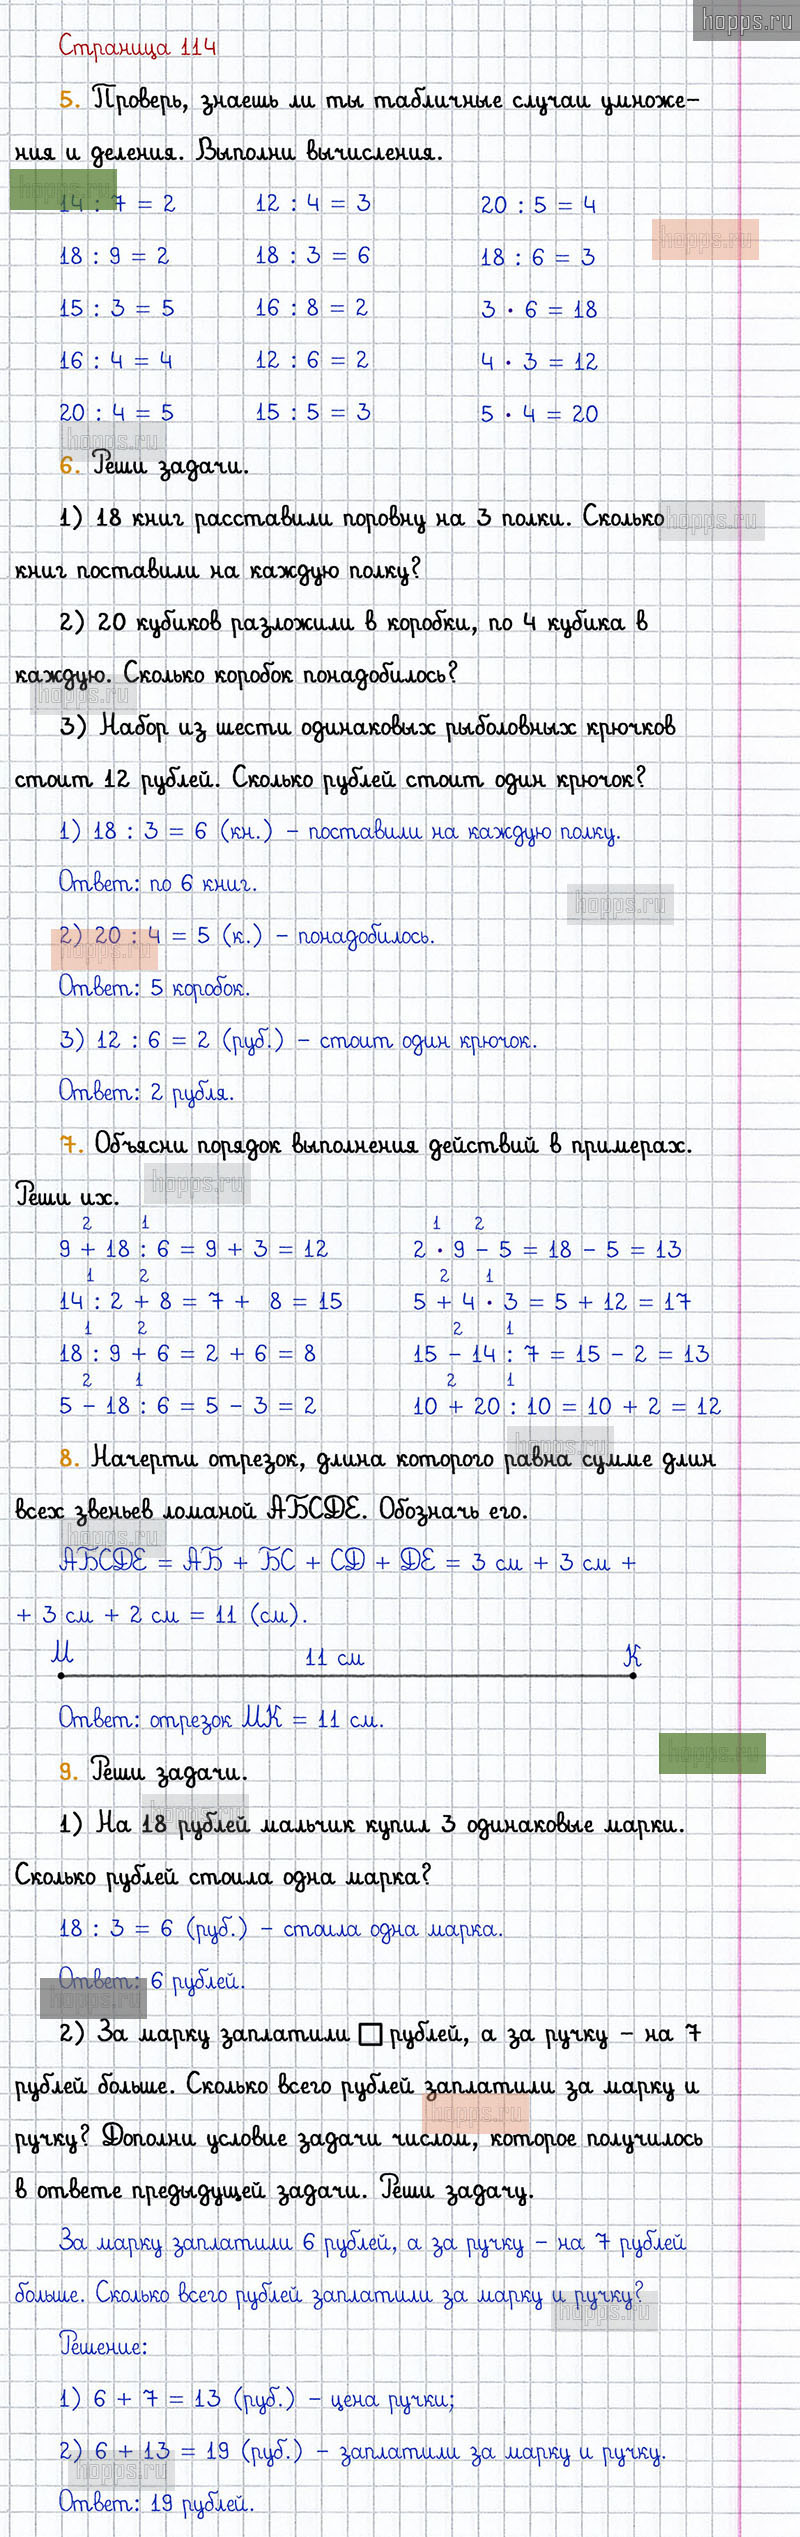 hopps.ru
Страница 114
5. Проверь, знаешь ли ты табличные случаи умноже-
ния и деления. Выполни вычисления.
hopps.ru
14 : 7 = 2 12 : 4 = 3 20 : 5 = 4
hopps.ru
18 : 9 = 2 18 : 3 = 6 18 : 6 = 3
15 : 3 = 5 16 : 8 = 2 3 · 6 = 18
16 : 4 = 4 12 : 6 = 2 4 · 3 = 12
20 : 4 = 5 15 : 5 = 3 5 · 4 = 20
hopps.ru
6. Реши задачи.
1) 18 книг расставили поровну на 3 полки. Сколько
hopps.ru
книг поставили на каждую полку?
2) 20 кубиков разложили в коробки, по 4 кубика в
каждую. Сколько коробок понадобилось?
hopps.ru
3) Набор из шести одинаковых рыболовных крючков
стоит 12 рублей. Сколько рублей стоит один крючок?
1) 18 : 3 = 6 (кн.) – поставили на каждую полку.
Ответ: по 6 книг.
hopps.ru
2) 20 : 4 = 5 (к.) – понадобилось.
hopps.ru
Ответ: 5 коробок.
3) 12 : 6 = 2 (руб.) – стоит один крючок.
Ответ: 2 рубля.
7. Объясни порядок выполнения действий в примерах.
hopps.ru
Реши их.
2 1 1 2
9 + 18 : 6 = 9 + 3 = 12 2 · 9 – 5 = 18 – 5 = 13
1 2 2 1
14 : 2 + 8 = 7 + 8 = 15 5 + 4 · 3 = 5 + 12 = 17
1 2 2 1
18 : 9 + 6 = 2 + 6 = 8 15 – 14 : 7 = 15 – 2 = 13
2 1 2 1
5 – 18 : 6 = 5 – 3 = 2 10 + 20 : 10 = 10 + 2 = 12
hopps.ru
8. Начерти отрезок, длина которого равна сумме длин
всех звеньев ломаной АБСДЕ. Обозначь его.
hopps.ru
АБСДЕ = АБ + БС + СД + ДЕ = 3 см + 3 см +
+ 3 см + 2 см = 11 (см).
М 11 см К
Ответ: отрезок МК = 11 см.
hopps.ru
9. Реши задачи.
hopps.ru
1) На 18 рублей мальчик купил 3 одинаковые марки.
Сколько рублей стоила одна марка?
18 : 3 = 6 (руб.) – стоила одна марка.
Ответ: 6 рублей.
hopps.ru
2) За марку заплатили □ рублей, а за ручку – на 7
рублей больше. Сколько всего рублей заплатили за марку и
hopps.ru
ручку? Дополни условие задачи числом, которое получилось
в ответе предыдущей задачи. Реши задачу.
За марку заплатили 6 рублей, а за ручку – на 7 рублей
больше. Сколько всего рублей заплатили за марку и ручку?
hopps.ru
Решение:
1) 6 + 7 = 13 (руб.) – цена ручки;
2) 6 + 13 = 19 (руб.) – заплатили за марку и ручку.
hopps.ru
Ответ: 19 рублей.